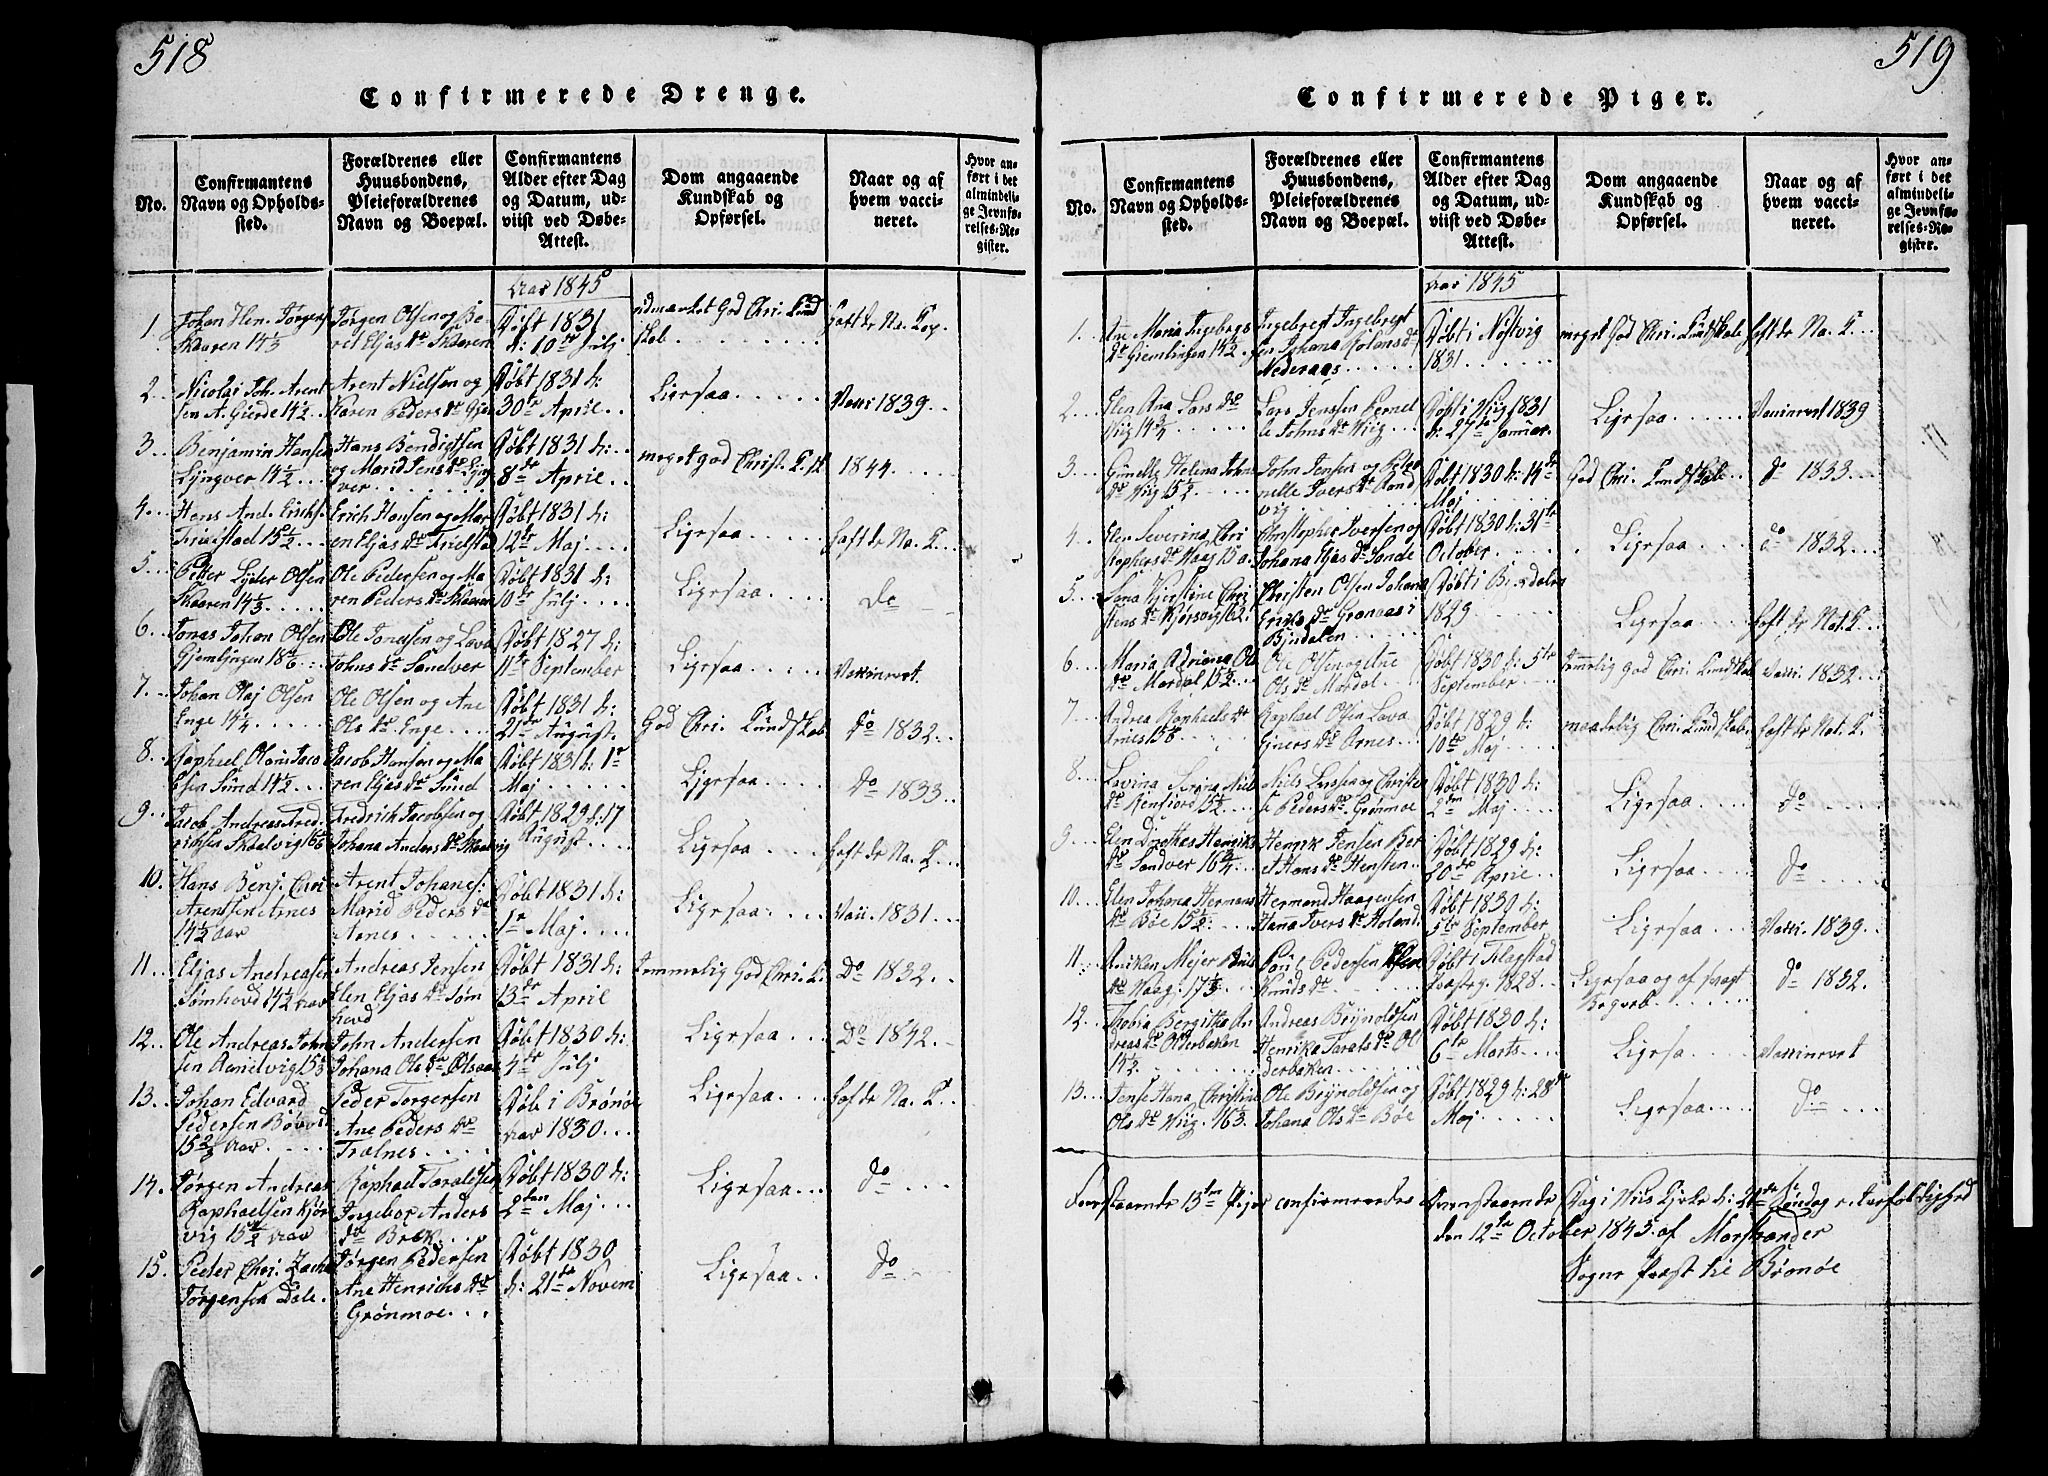 518
Confirmerede Drenge.
No.
Confirmantens
Navn og Opholds-
sted.
Forældrenes eller
Huusbondens,
Pleieforældrenes
Navn og Boepæl.
Confirmantens
Alder efter Dag
og Datum, ud-
viist ved Døbe-
Attest.
Dom angaaende
Kundskab og
Opførsel.
Naar og af
hvem vacci-
neret.
Hvor an-
ført i det
almindeli-
ge Jevnfø-
relses-Re-
gister.
Aar 1845
1. Johan Hen. Jørgens
Skaaren 14⅓
Jørgen Olsen og Be-
ret Eljas Dr Skaaren
Døbt 1831
d: 10de Julj
udmærket God Chri. Kund
skab
haft de Na. Kop.
2. Nicolai Joh. Arent
sen A. Gierde 14½
Arent Nielsen og
Karen Peders Dr Gjer
Døbt 1831 d:
30te April
Ligesaa
Vacci 1839
3. Benjamin Hansen
Lyngver 14½
Hans Bendigtsen
og Marid Jens Dr Lyng
ver
Døbt 1831 d:
8de April
meget god Christ. K.
1844
4. Hans And. Erichs.
Trælstad 15½
Erich Hansen og Mar
en Eljas Dr Trælstad
Døbt 1831 d:
12te Maj
Ligesaa
haft de Na. K.
5. Peter Lyder Olsen
Skaaren 14⅓
Ole Pedersen og Ma
ren Peders Dr Skaaren
Døbt 1831 d:
10de Julj
Ligesaa
Do
6. Jonas Johan Olsen
Gjemlingen 18⅙
Ole Jonessen og Lava
Johns Dr Sandver
Døbt 1827 d:
11te September
Ligesaa
Vakineret.
7. Johan Olaj Olsen
Enge 14¼
Ole Olsen og Ane
Ols Dr Enge
Døbt 1831 d:
21de August
God Chri. Kundskab
Do 1832
8. Raphael Olaus Jaco
bsen Sund 14½
Jacob Hansen og Ma
ren Eljas Dr Sund
Døbt 1831 d: 1te
Maj
Ligesaa
Do 1833
9. Jacob Andreas Fred.
richsen Skaalvig 16
Fredrich Jacobsen og
Johana Anders Dr Skaalvig
Døbt 1829 d: 17
August
Ligesaa
haft de Na. K.
10. Hans Benj. Chri
Arentsen Arnes
14½ Aar
Arent Johanes:
Marid Peders Dr
Arnes
Døbt 1831 d:
1te Maj
Ligesaa
Vacci. 1831
11. Eljas Andreasen
Sømhovd 14½ Aar
Andreas Jensen
Elen Eljas Dr Søm
hovd
Døbt 1831 d:
13de April
temmelig God Chri. K.
Do 1832
12. Ole Andreas John
sen Ramelvig 15
John Andersen
Johana Ols Dr Olsaa
Døbt 1830 d:
4de Julj
Ligesaa
Do 1842
13. Johan Edvard
Pedersen Bøved
15 Aar
Peder Torgersen
Ane Peders Dr
Trælnes
Døb i Brønøe
Aar 1830
Ligesaa
haft de Na. K
14. Jørgen Andreas
Raphaelsen Kjør
vig 15½ Aar
Raphael Taraldsen
Ingebor Anders
Dr Bræk
Døbt 1830 d:
2den Maj
Ligesaa
Do
15. Peder Chri. Zacha
Jørgensen Dale.
Jørgen Pedersen
Ane Henrichs Dr
Grønmoe
Døbt 1830
d: 21te Novem
Ligesaa
Do
519
Confirmerede Piger.
No.
Confirmantens
Navn og Opholds-
sted.
Forældrenes eller
Huusbondens,
Pleieforældrenes
Navn og Boepæl.
Confirmantens
Alder efter Dag
og Datum, ud-
viist ved Døbe-
Attest.
Dom angaaende
Kundskab og
Opførsel.
Naar og af
hvem vacci-
neret.
Hvor an-
ført i det
almindeli-
ge Jevnfø-
relses-Re-
gister.
Aar 1845
1. Ane Maria Ingebrigs
Dr Gremlingen 14½
Ingebregt Ingebregt
sen Johana Rolans Dr
Nederaas
Døbt i Nøstvig
1831
meget God Chri. Kundskab
haft de Na. K
2. Elen Ana Lars Dr
Viig 14¾
Lars Jenssen Pernel
le Johns Dr Viig
Døbt i Viig 1831
d: 27de Januar.
Ligesaa
Vaccineret 1839
3. Gunelle Helena Johns
Dr Viig 15½
John Jensen og Peter
nelle Ivers Dr Rand
vig
Døbt 1830 d: 14de
Maj
God Chri. Kundskab
Do 1833
4. Elen Severina Chri
stophers Dr Vaag 15 a.
Christopher Iversen og
Johana Eljas Dr Sande
Døbt 1830 d: 31te
October
Ligesaa
do 1832
5. Lana Kjerstine Chri
stens Dr Kjørsvig 16½
Christen Olsen Johana
Erichs Dr Granaas i
Bjndalen
Døbt i Bindalen
1829
Ligesaa
haft de Nat. K
6. Maria Adriana Ols
Dr Mardal 15½
Ole Olsen og Ane
Ols Dr Mardal
Døbt 1830 d: 5te
September
temmelig God Chri. Kundskab
Vacci. 1832
7. Andrea Raphaels Dr
Arnes 15
Raphael Olsen Lava
Ejners Dr Arnes
Døbt 1829 d:
10de Maj
maadelig Chri. Kundskab.
haft de Nat. K
8. Lavina Serina Niels
Dr Renfjord 15½
Niels Larsen og Christen
se Peders Dr Grønmoe
Døbt 1830 d:
2den Maj
Ligesaa
Do
9. Elen Dorothea Henriks
Dr Sandver 16¾
Henrik Jensen Ber
et Hans Dr Hensten
Døbt 1829 d:
20de April
Ligesaa
Do
10. Elen Johana Hermans
Dr Bøe 15½
Hermand Haagensen
Hanna Ivers Dr Holand
Døbt 1830 d:
5te September
Ligesaa
Vacci. 1839
11. Aniken Mejer Povels
Dr Vaag. 17⅓
Povl Pedersen Elen
Knuds Dr
Døbt i Flagstad
Præsteg. 1828
Ligesaa og af svagt
Begreb
Do 1832.
12. Thobia Bergitha An
dreas Dr Olderbaken
15½
Andreas Brynoldsen
Henrika Taralds Dr Ol
derbaken
Døbt 1830 d:
6te Marts
Ligesa
Vaccineret
13. Jense Hana Christine
Ols Dr Viig. 16⅓
Ole Brynoldsen og
Johana Ols Dr Bøe
Døbt 1829 d: 28de
Maj
Ligesaa
Do
Forestaaende 13ten Piger confirmeredes Ovenstaaende Dag i Viis Kjrke d: 21de Søndag e. Trefoldighed
den 12te October 1845. af
Sogne Præst til Brønøe